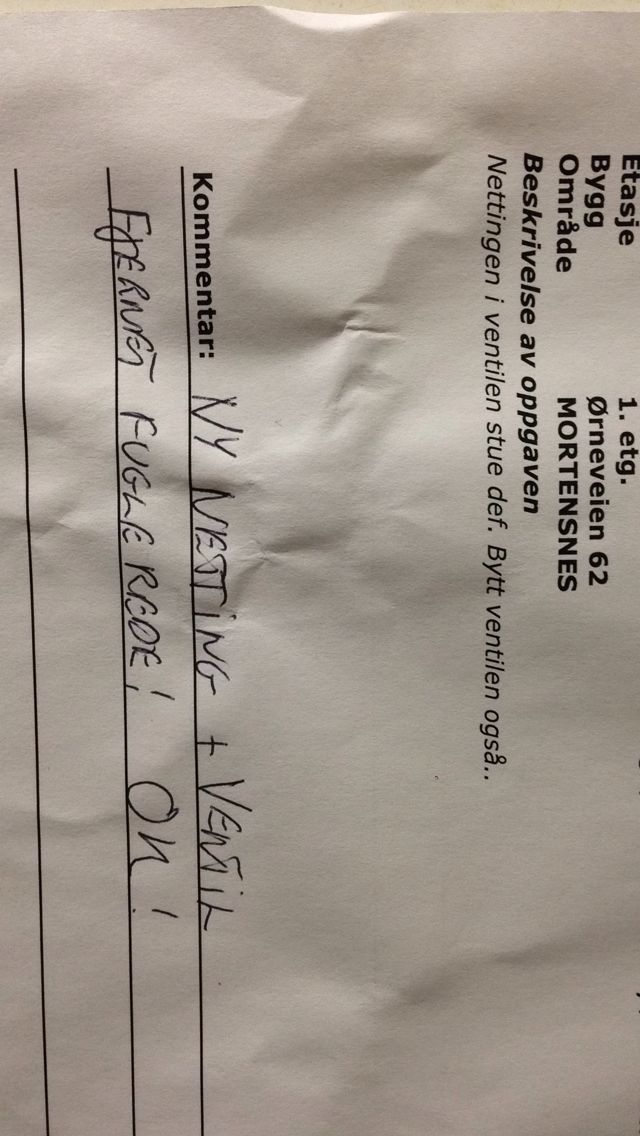 Etasje 1. etg.
Bygg Ørneveien 62
Område MORTENSNES
Beskrivelse av oppgaven
Nettingen i ventilen stue def. Bytt ventilen også..
Kommentar: NY NETTING + VENTIL
FJERNET FUGLEREDE! OK!